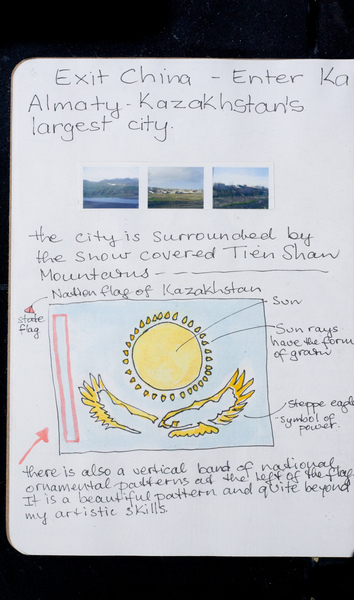 Exit China - Enter Ka
Almaty - Kazakhstan's
largest city.
the city is surrounded by
the snow covered Tien Shan
Mountains
Nation flag of Kazakhstan
state
flag
Sun
Sun rays
have the form
of grain
Steppe eagle
- symbol of
power.
there is also a vertical band of national
ornamental patterns at the left of the flag.
It is a beautiful pattern and quite beyond
my artistic skills.